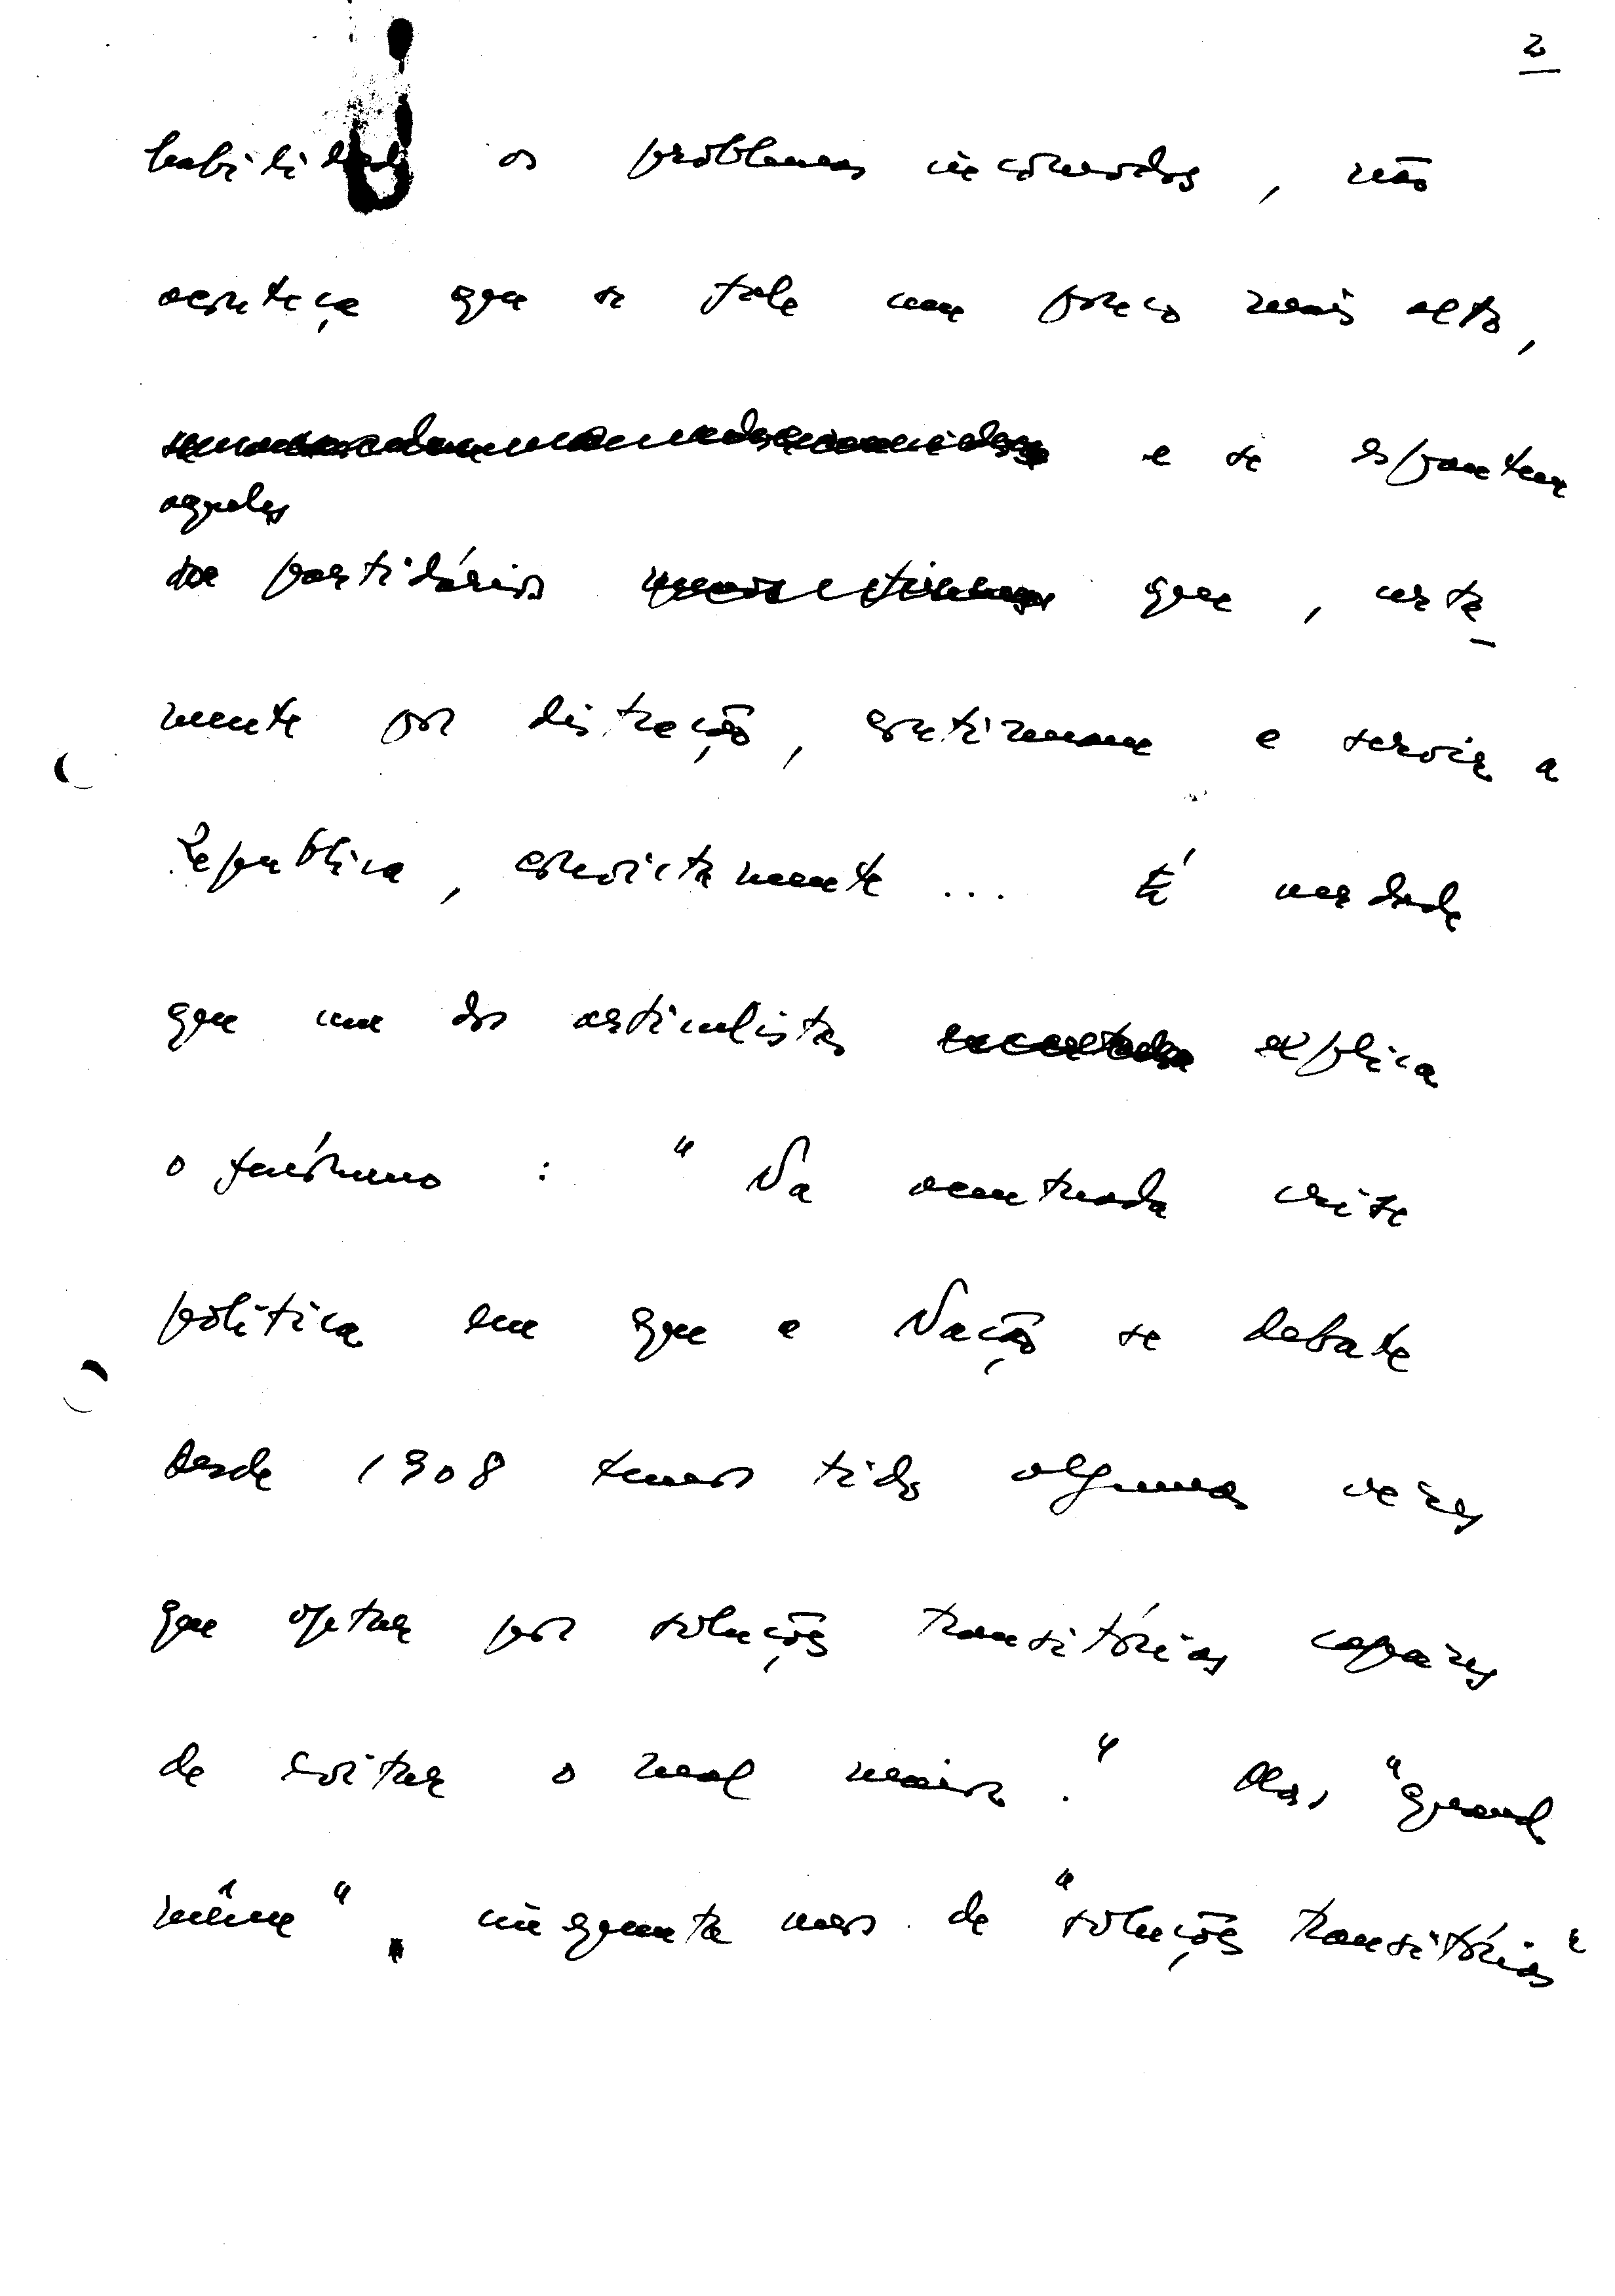 2
habilidade os problemas incómodos, não
aconteça que se fale um pouco mais alto,
e se espantem
aqueles
partidários que, certa-
mente por distração, continuam a servir a
Republica, convictamente ... É verdade
que um dos articulistas explica
o fenómeno : " Na acentuada crise
política em que a Nação se debate
desde 1908 temos tido algumas vezes
que optar por soluções transitórias capazes
de evitar o mal maior." Mas, "quand
même", cinquenta anos de "soluções transitórias"